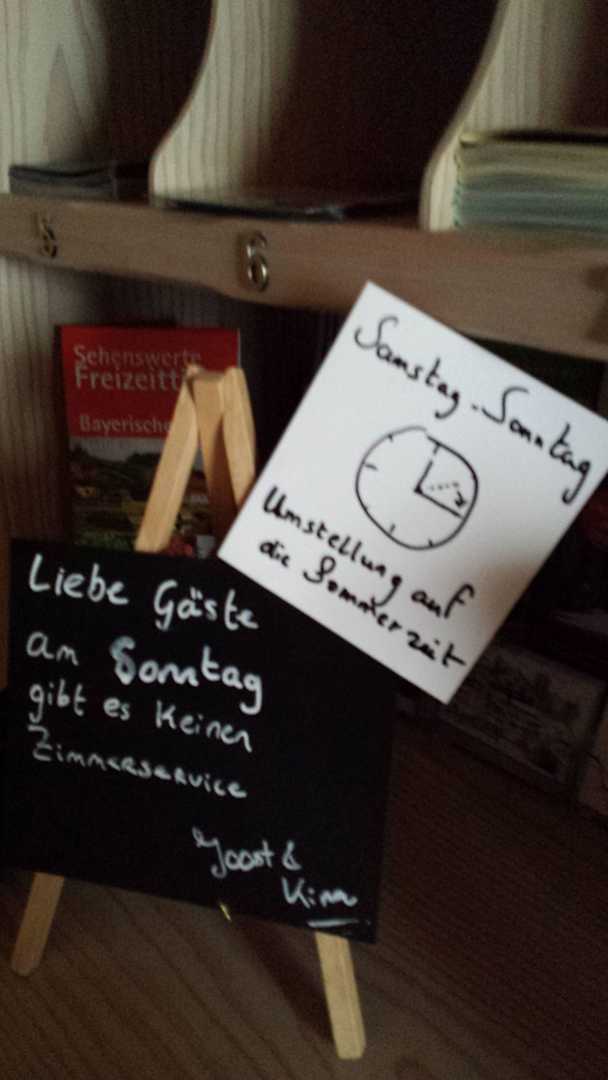 5
6
Sehenswerte
Freizeitt
Bayerische
Samstag - Sonntag
Umstellung auf
die Sommerzeit
Liebe Gäste
am Sonntag
gibt es keinen
Zimmerservice
Joost &
Kim